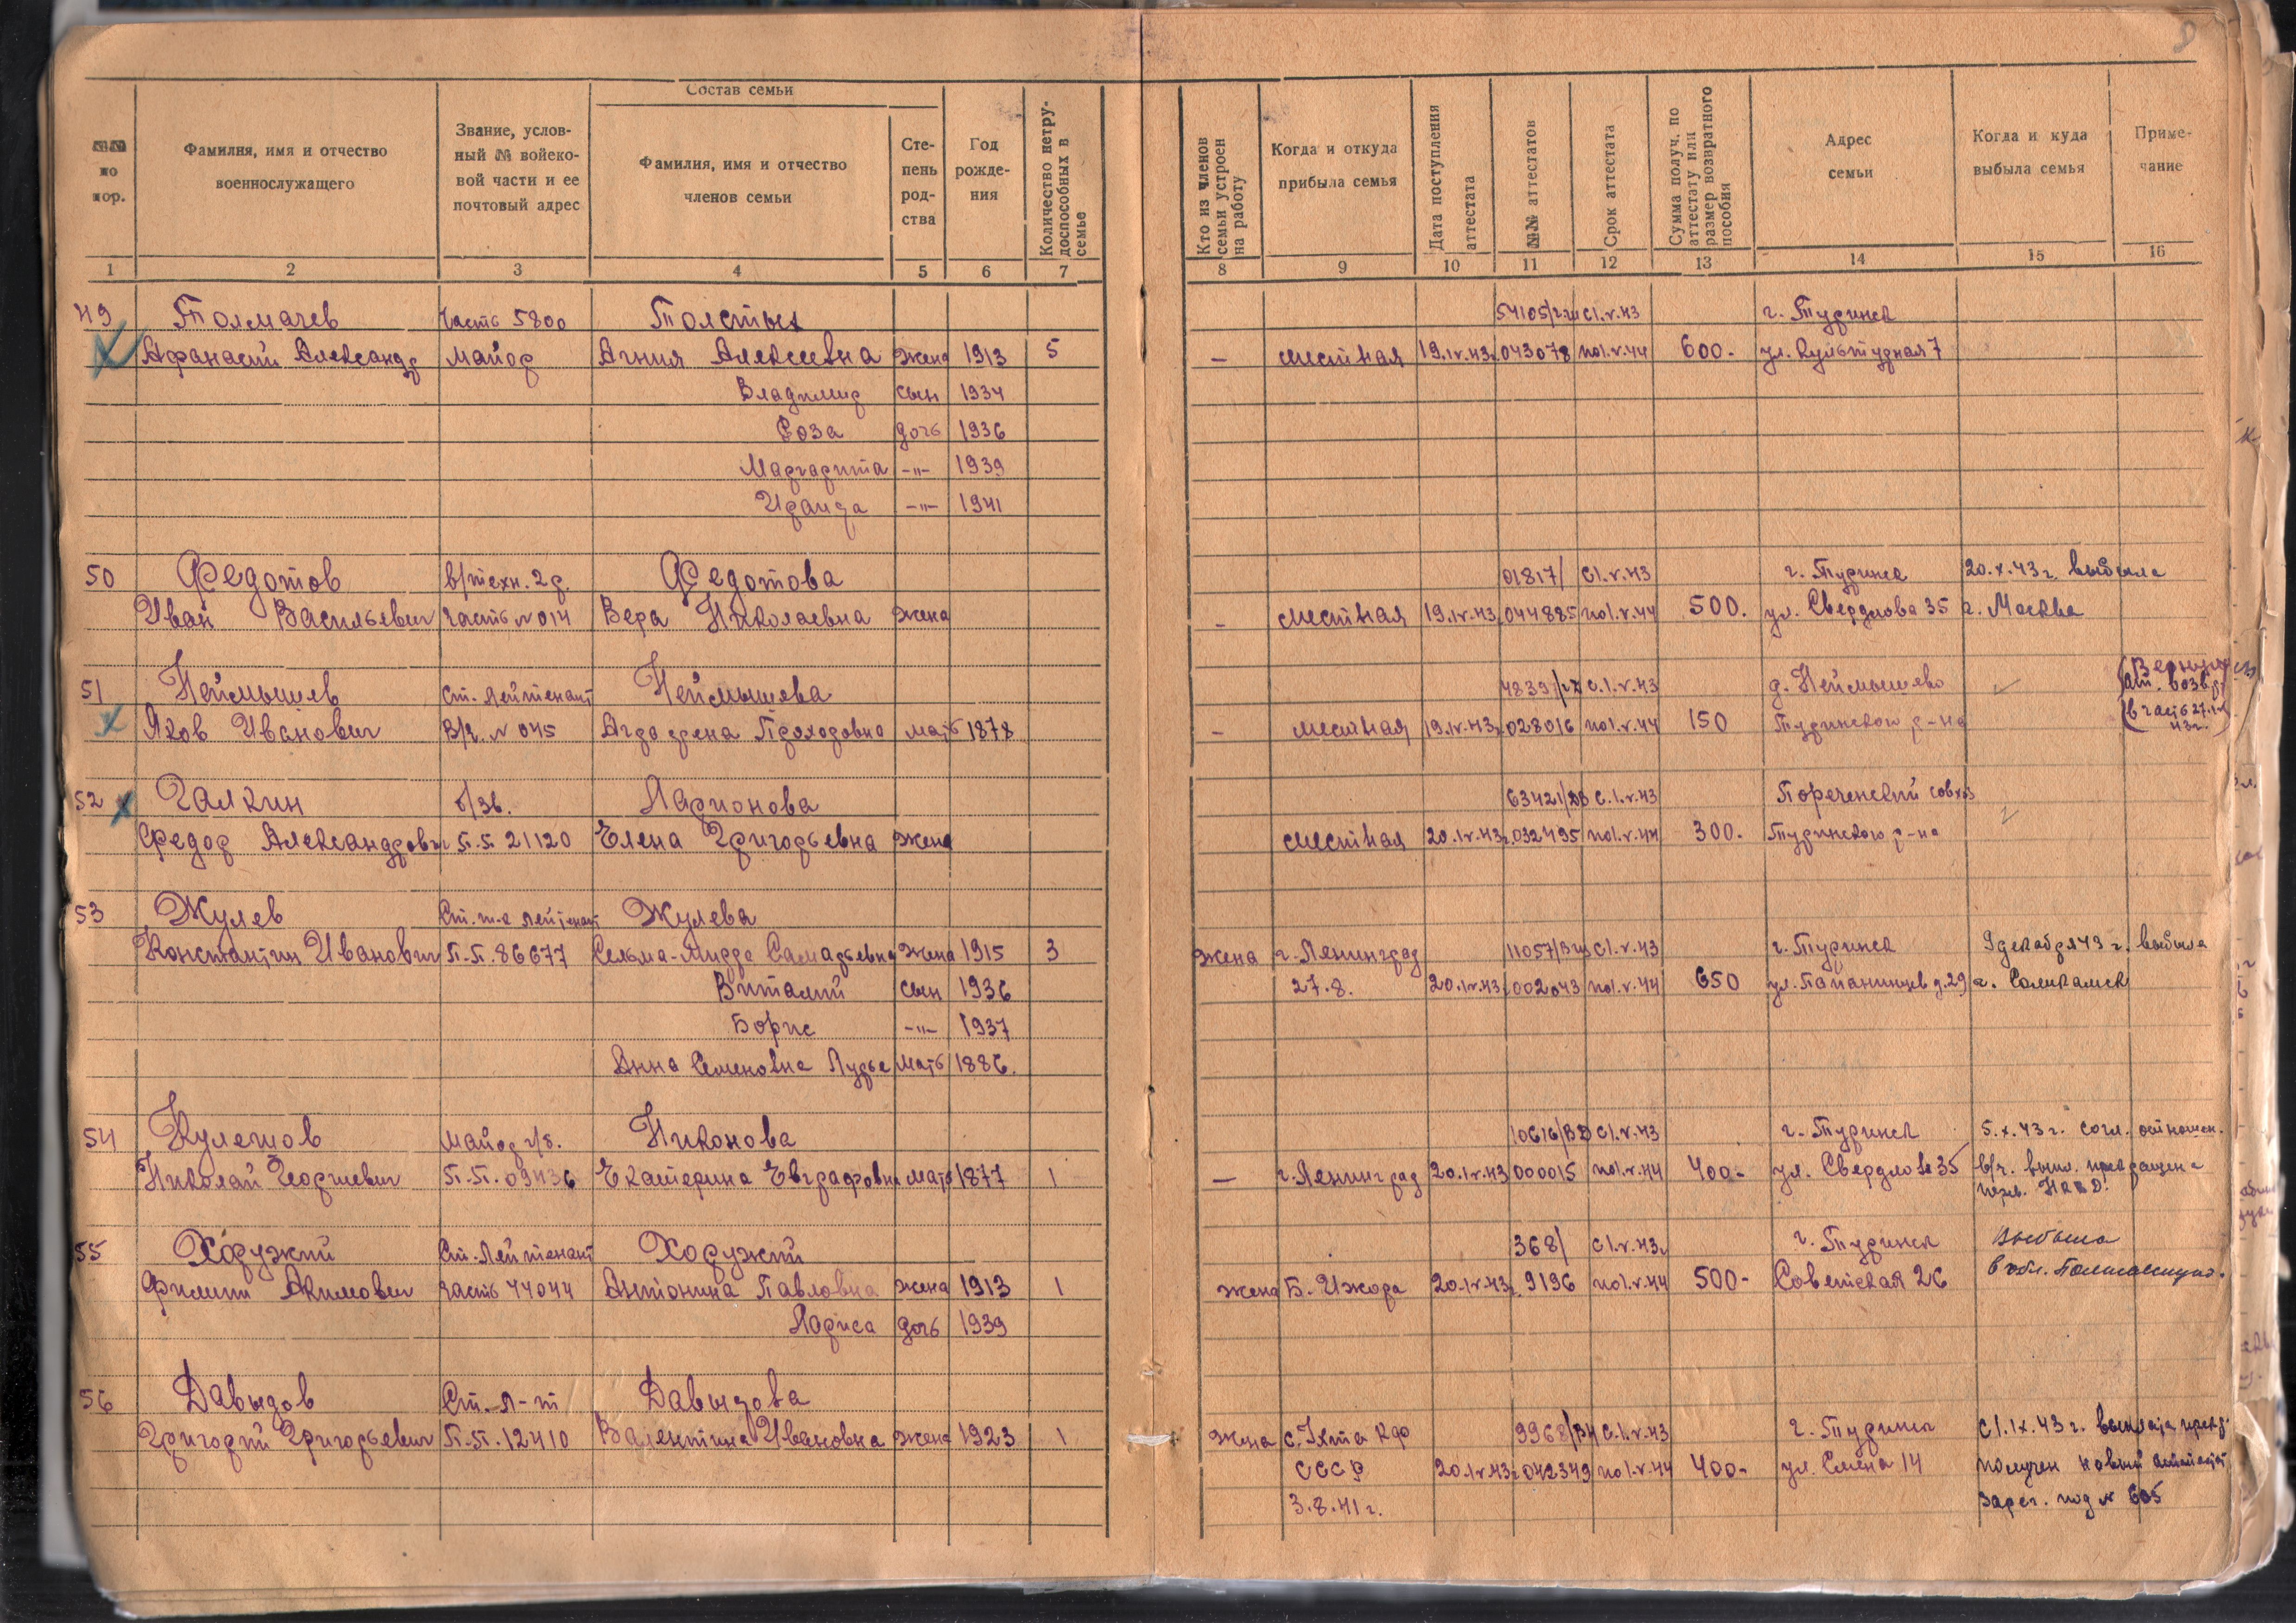 Состав семьи
№№ по пор.
Фамилия, имя и отчество военнослужащего
Звание, условный № войсковой части и ее почтовый адрес
Фамилия, имя и отчество членов семьи
Степень родства
Год рождения
Количество нетрудоспособных в семье
Кто из членов семьи устроен на работу
Когда и откуда прибыла семья
Дата поступления аттестата
№№ аттестатов
Срок аттестата
Сумма получ. по аттестату или размер возвратного пособия
Адрес семьи
Когда и куда выбыла семья
Примечание
1 2 3 4 5 6 7 8 9 10 11 12 13 14 15 16
49 Толмачев часть 5800 Толстых 54105/ с1.V.43 г. Туринск
Афанасий Александр майор Агния Алексеевна жена 1913 5 — местная 19.IV.43. 043078 по1.V.44 600- ул. Культурная 7
Владимир сын 1934
Роза дочь 1936
Маргарита -"- 1939
Ираида -"- 1941
50 Федотов в/техн. 2р. Федотова 01817/ с1.V.43 г. Туринск 20.X.43г. выбыла
Иван Васильевич часть №014 Вера Николаевна жена - местная 19.IV.43. 044885 по1.V.44 500. ул. Свердлова 35 г. Москва
51 Неймышев Ст. Лейтенант Неймышева 4839/ с.1.V.43 д. Неймышево
Яков Иванович В/ч. № 045 Прохоровна мать 1878 - местная 19.IV.43. 028016 по1.V.44 150 Туринского р-на в часть 27. 43г.
52 Галкин б/зв. Ларионова 63421/ с.1.V.43 Пореченский совхоз
Федор Александрович П.П. 21120 Елена Григорьевна жена местная 20.IV.43г. 032495 по1.V.44 300. Туринского р-на
53 Жулев Ст. т-к лейтенант Жулева
Константин Иванович П.П. 86677 Сельма-Мирра Самарьевна жена 1915 3 жена г. Ленинград 11057/ с1.V.43 г. Туринск 9декабря43 г. выбыла
Виталий сын 1936 27.8. 20.IV.43. 002043 по1.V.44 650 ул. Папанинцев д.29 г. Соликамск
Борис -"- 1937
Анна Семеновна Лурье мать 1886.
54 Кулешов майор г/б. Никонова 10616/ВД с1.V.43 г. Туринск 5.X.43г. согл. отношен.
Николай Георгиевич П.П. 09436 Екатерина Евграфовна мать 1877 1 — г. Ленинград 20.IV.43 000015 по1.V.44 400- ул. Свердлова 35 в/ч. выпл. прекращена
НКВД.
55 Хоружий Ст. Лейтенант Хоружий 368/ с1.V.43г г. Туринск Выбыла
Филипп Акимович часть 44044 Антонина Павловна жена 1913 1 жена Б. Ижора 20.IV.43. 9196 по1.V.44 500- Советская 26
Лариса дочь 1939
56 Давыдов Ст. Л-т Давыдова
Григорий Григорьевич П.П. 12410 Валентина Ивановна жена 1923 1 жена с. Ухта Кфо 9968/ с.1.V.43 г. Туринск с1.IX.43г. выплата прекр.
СССР 20.IV.43г 042349 по1.V.44 400- ул. Смена 14 получен новый аттестат
3.8.41г. Зарег. под № 605